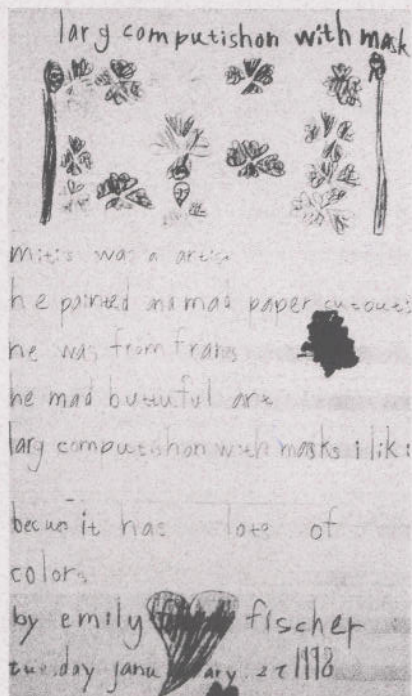 larg computishon with mask
mitis was a artis
he painted and mad paper cutouts
he was from frans
he mad butuful art
larg computishon with masks i like
becus it has lots of
colors
by emily fischer
tuesday january 27 1998